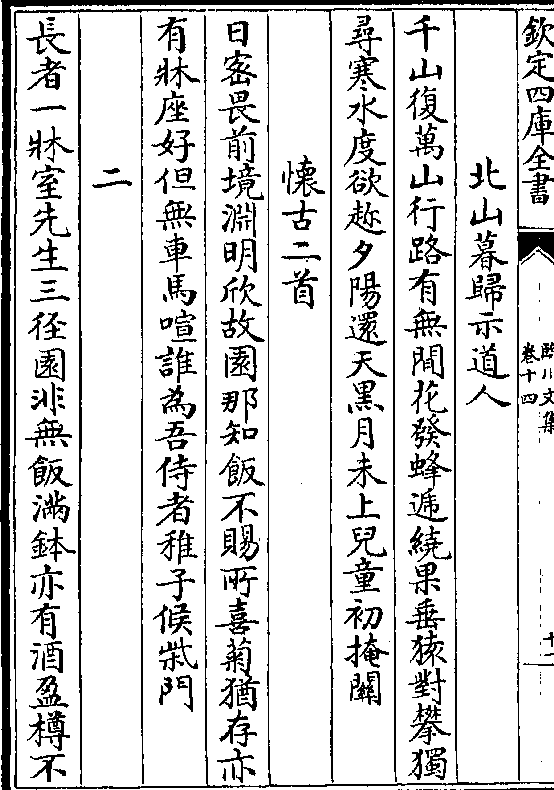 欽定四庫全書
臨川文集
卷十四
北山暮歸示道人
千山復萬山行路有無間花發蜂遞繞果垂猿對攀獨
尋寒水度欲趂夕陽還天黑月未上兒童初掩關
懷古二首
日密畏前境淵明欣故園那知飯不賜所喜菊猶存亦
有牀座好但無車馬喧誰為吾侍者稚子候柴門
二
長者一牀室先生三徑園非無飯滿鉢亦有酒盈樽不